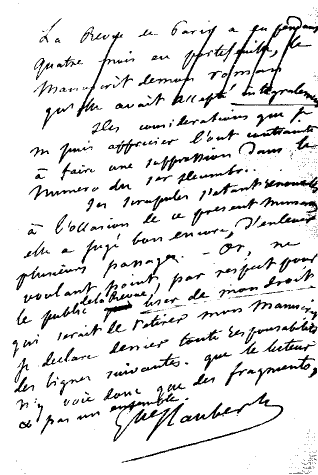 La Revue de Paris a eu pendant
quatre mois en portefeuille, le
Manuscrit de mon roman
qu'elle avait accepté intégralement
Des considérations que je
ne puis apprécier l'ont contrainte
à faire une suppression dans le
Numéro du 1er décembre.
Ses scrupules s'étant renouvelés
à l'occasion de ce présent numéro
elle a jugé bon encore, d'enlever
plusieurs passages. – Or, ne
voulant point, par respect pour
le public de la Revue, user de mon droit
qui serait de retirer mon manuscrit
je déclare dénier toute responsabilité
des lignes suivantes. que le lecteur
n'y voie donc que des fragments,
& pas un ensemble.
Gve Flaubert